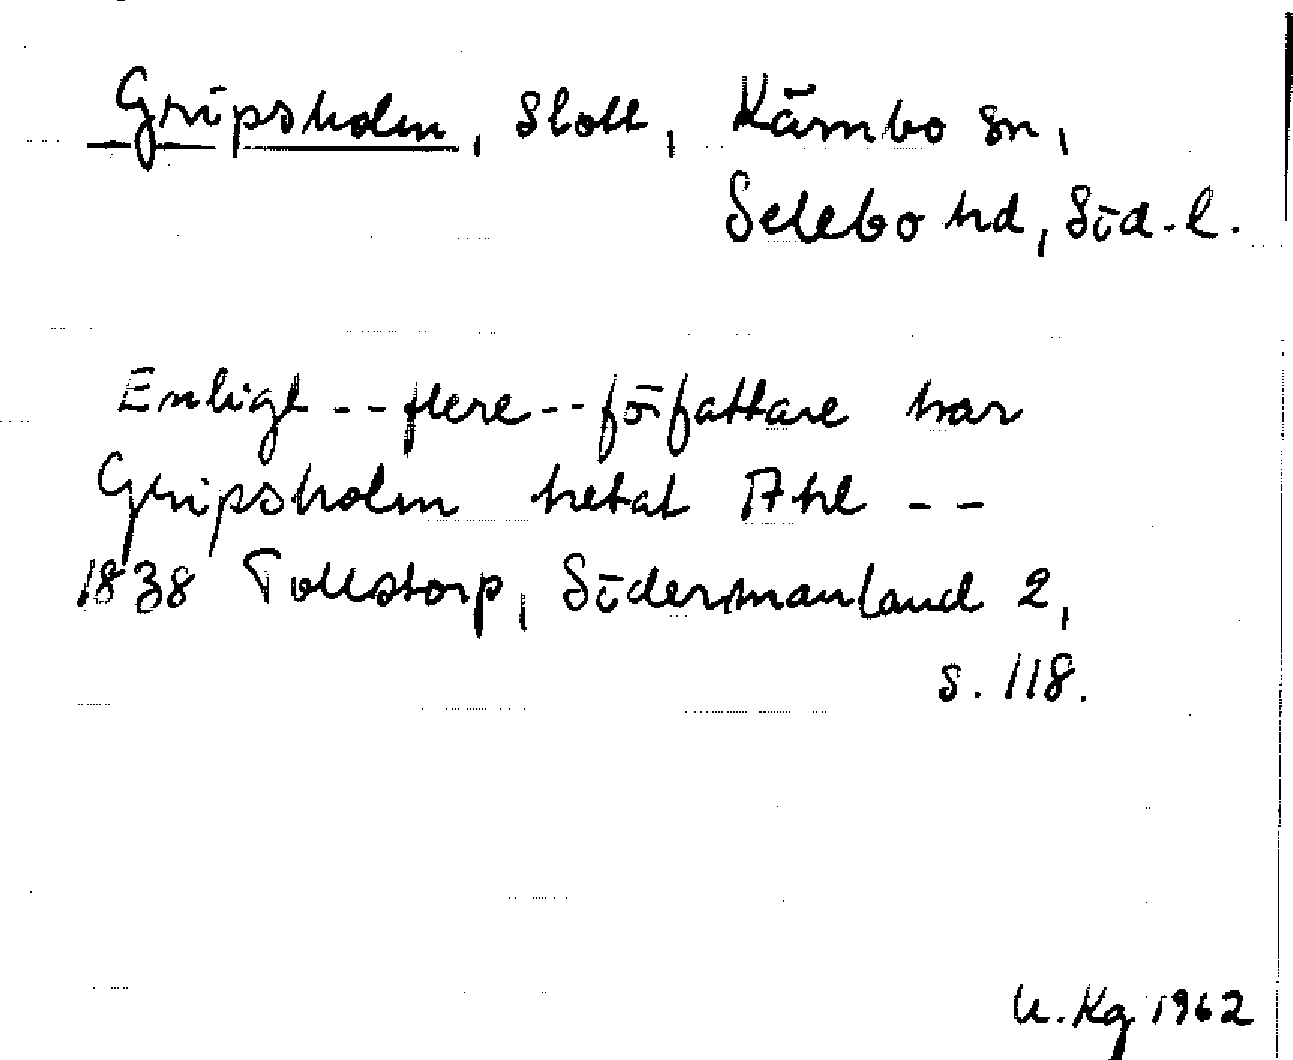 Gripsholm, Slott, Kärnbo sn,
Selebo hd, Söd. l.
Enligt -- flere -- författare har
Gripsholm hetat Ahl --
1838 Tollstorp, Södermanland 2,
s. 118.
U. Kg 1962